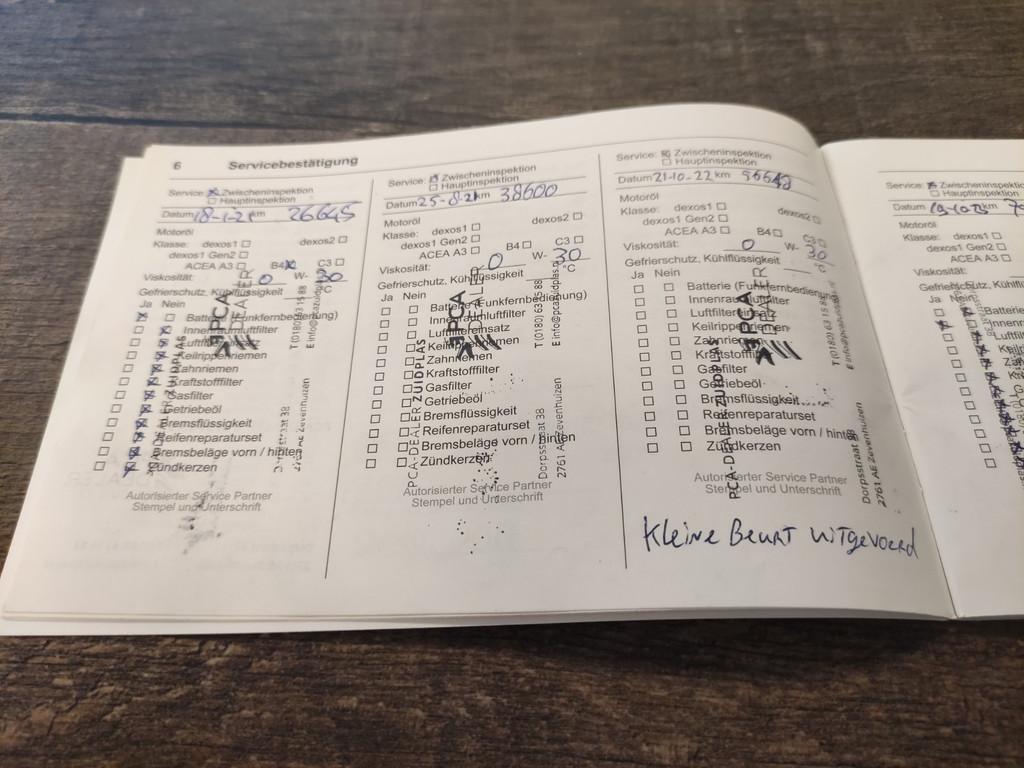 6 Servicebestätigung
Service: Zwischeninspektion
Hauptinspektion
Datum 18-1-21 km 26645
Motoröl
Klasse: dexos1 dexos2
dexos1 Gen2
ACEA A3 B4 C3
Viskosität: 0 W- 30
Gefrierschutz, Kühlflüssigkeit °C
Ja Nein
Batterie (Funkfernbedienung)
Innenraumluftfilter
Luftfiltereinsatz
Keilrippenriemen
Zahnriemen
Kraftstofffilter
Gasfilter
Getriebeöl
Bremsflüssigkeit
Reifenreparaturset
Bremsbeläge vorn / hinten
Zündkerzen
Autorisierter Service Partner
Stempel und Unterschrift
PCA
DEALER
T (0180) 63 15 88
2761 AE Zevenhuizen
Service: Zwischeninspektion
Hauptinspektion
Datum 25-8-21 km 38600
Motoröl
Klasse: dexos1 dexos2
dexos1 Gen2
ACEA A3 B4 C3
Viskosität: 0 W- 30
Gefrierschutz, Kühlflüssigkeit °C
Ja Nein
Batterie (Funkfernbedienung)
Innenraumluftfilter
Luftfiltereinsatz
Keilrippenriemen
Zahnriemen
Kraftstofffilter
Gasfilter
Getriebeöl
Bremsflüssigkeit
Reifenreparaturset
Bremsbeläge vorn / hinten
Zündkerzen
Autorisierter Service Partner
Stempel und Unterschrift
PCA
DEALER
PCA-DEALER ZUIDPLAS
Dorpsstraat 38
2761 AE Zevenhuizen
T (0180) 63 15 88
E info@pcazuidplas.nl
Service: Zwischeninspektion
Hauptinspektion
Datum 21-10-22 km
Motoröl
Klasse: dexos1 dexos2
dexos1 Gen2
ACEA A3 B4 C3
Viskosität: 0 W- 30
Gefrierschutz, Kühlflüssigkeit °C
Ja Nein
Batterie (Funkfernbedienung)
Innenraumluftfilter
Luftfiltereinsatz
Keilrippenriemen
Zahnriemen
Kraftstofffilter
Gasfilter
Getriebeöl
Bremsflüssigkeit
Reifenreparaturset
Bremsbeläge vorn / hinten
Zündkerzen
Autorisierter Service Partner
Stempel und Unterschrift
PCA
DEALER
PCA-DEALER ZUIDPLAS
Dorpsstraat 38
2761 AE Zevenhuizen
T (0180) 63 15 88
Kleine Beurt uitgevoerd
Service: Zwischeninspektion
Hauptinspektion
Datum km
Motoröl
Klasse: dexos1
dexos1 Gen2
ACEA A3
Viskosität:
Gefrierschutz,
Ja Nein